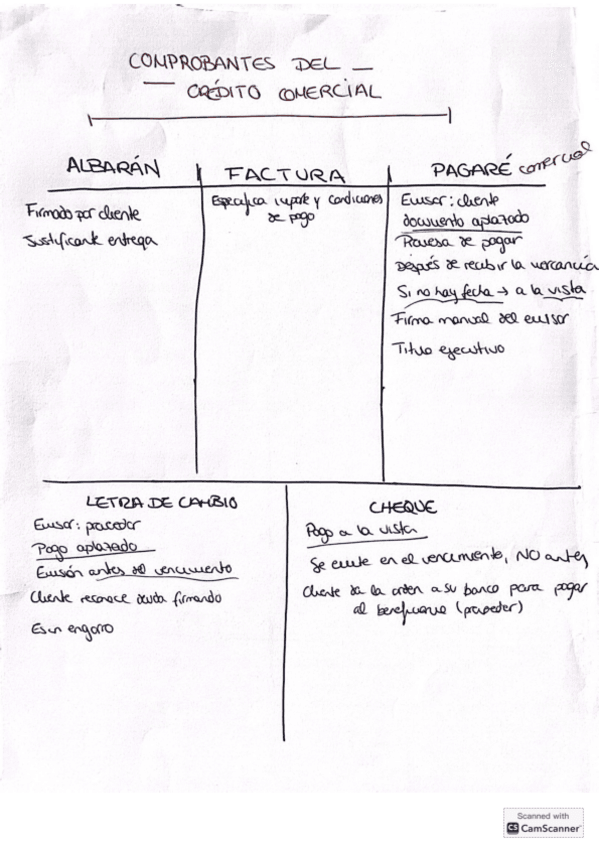 COMPROBANTES DEL
CRÉDITO COMERCIAL
ALBARÁN
Firmado por cliente
Justificante entrega
FACTURA
Especifica importe y condiciones
de pago
PAGARÉ comercial
Emisor: cliente
documento aplazado
Promesa de pagar
Después de recibir la mercancía
Si no hay fecha → a la vista
Firma manual del emisor
Título ejecutivo
LETRA DE CAMBIO
Emisor: proveedor
Pago aplazado
Emisión antes del vencimiento
Cliente reconoce deuda firmando
Es un engorro
CHEQUE
Pago a la vista
Se emite en el vencimiento, NO antes
Cliente da la orden a su banco para pagar
al beneficiario (proveedor)
Scanned with
CS CamScanner